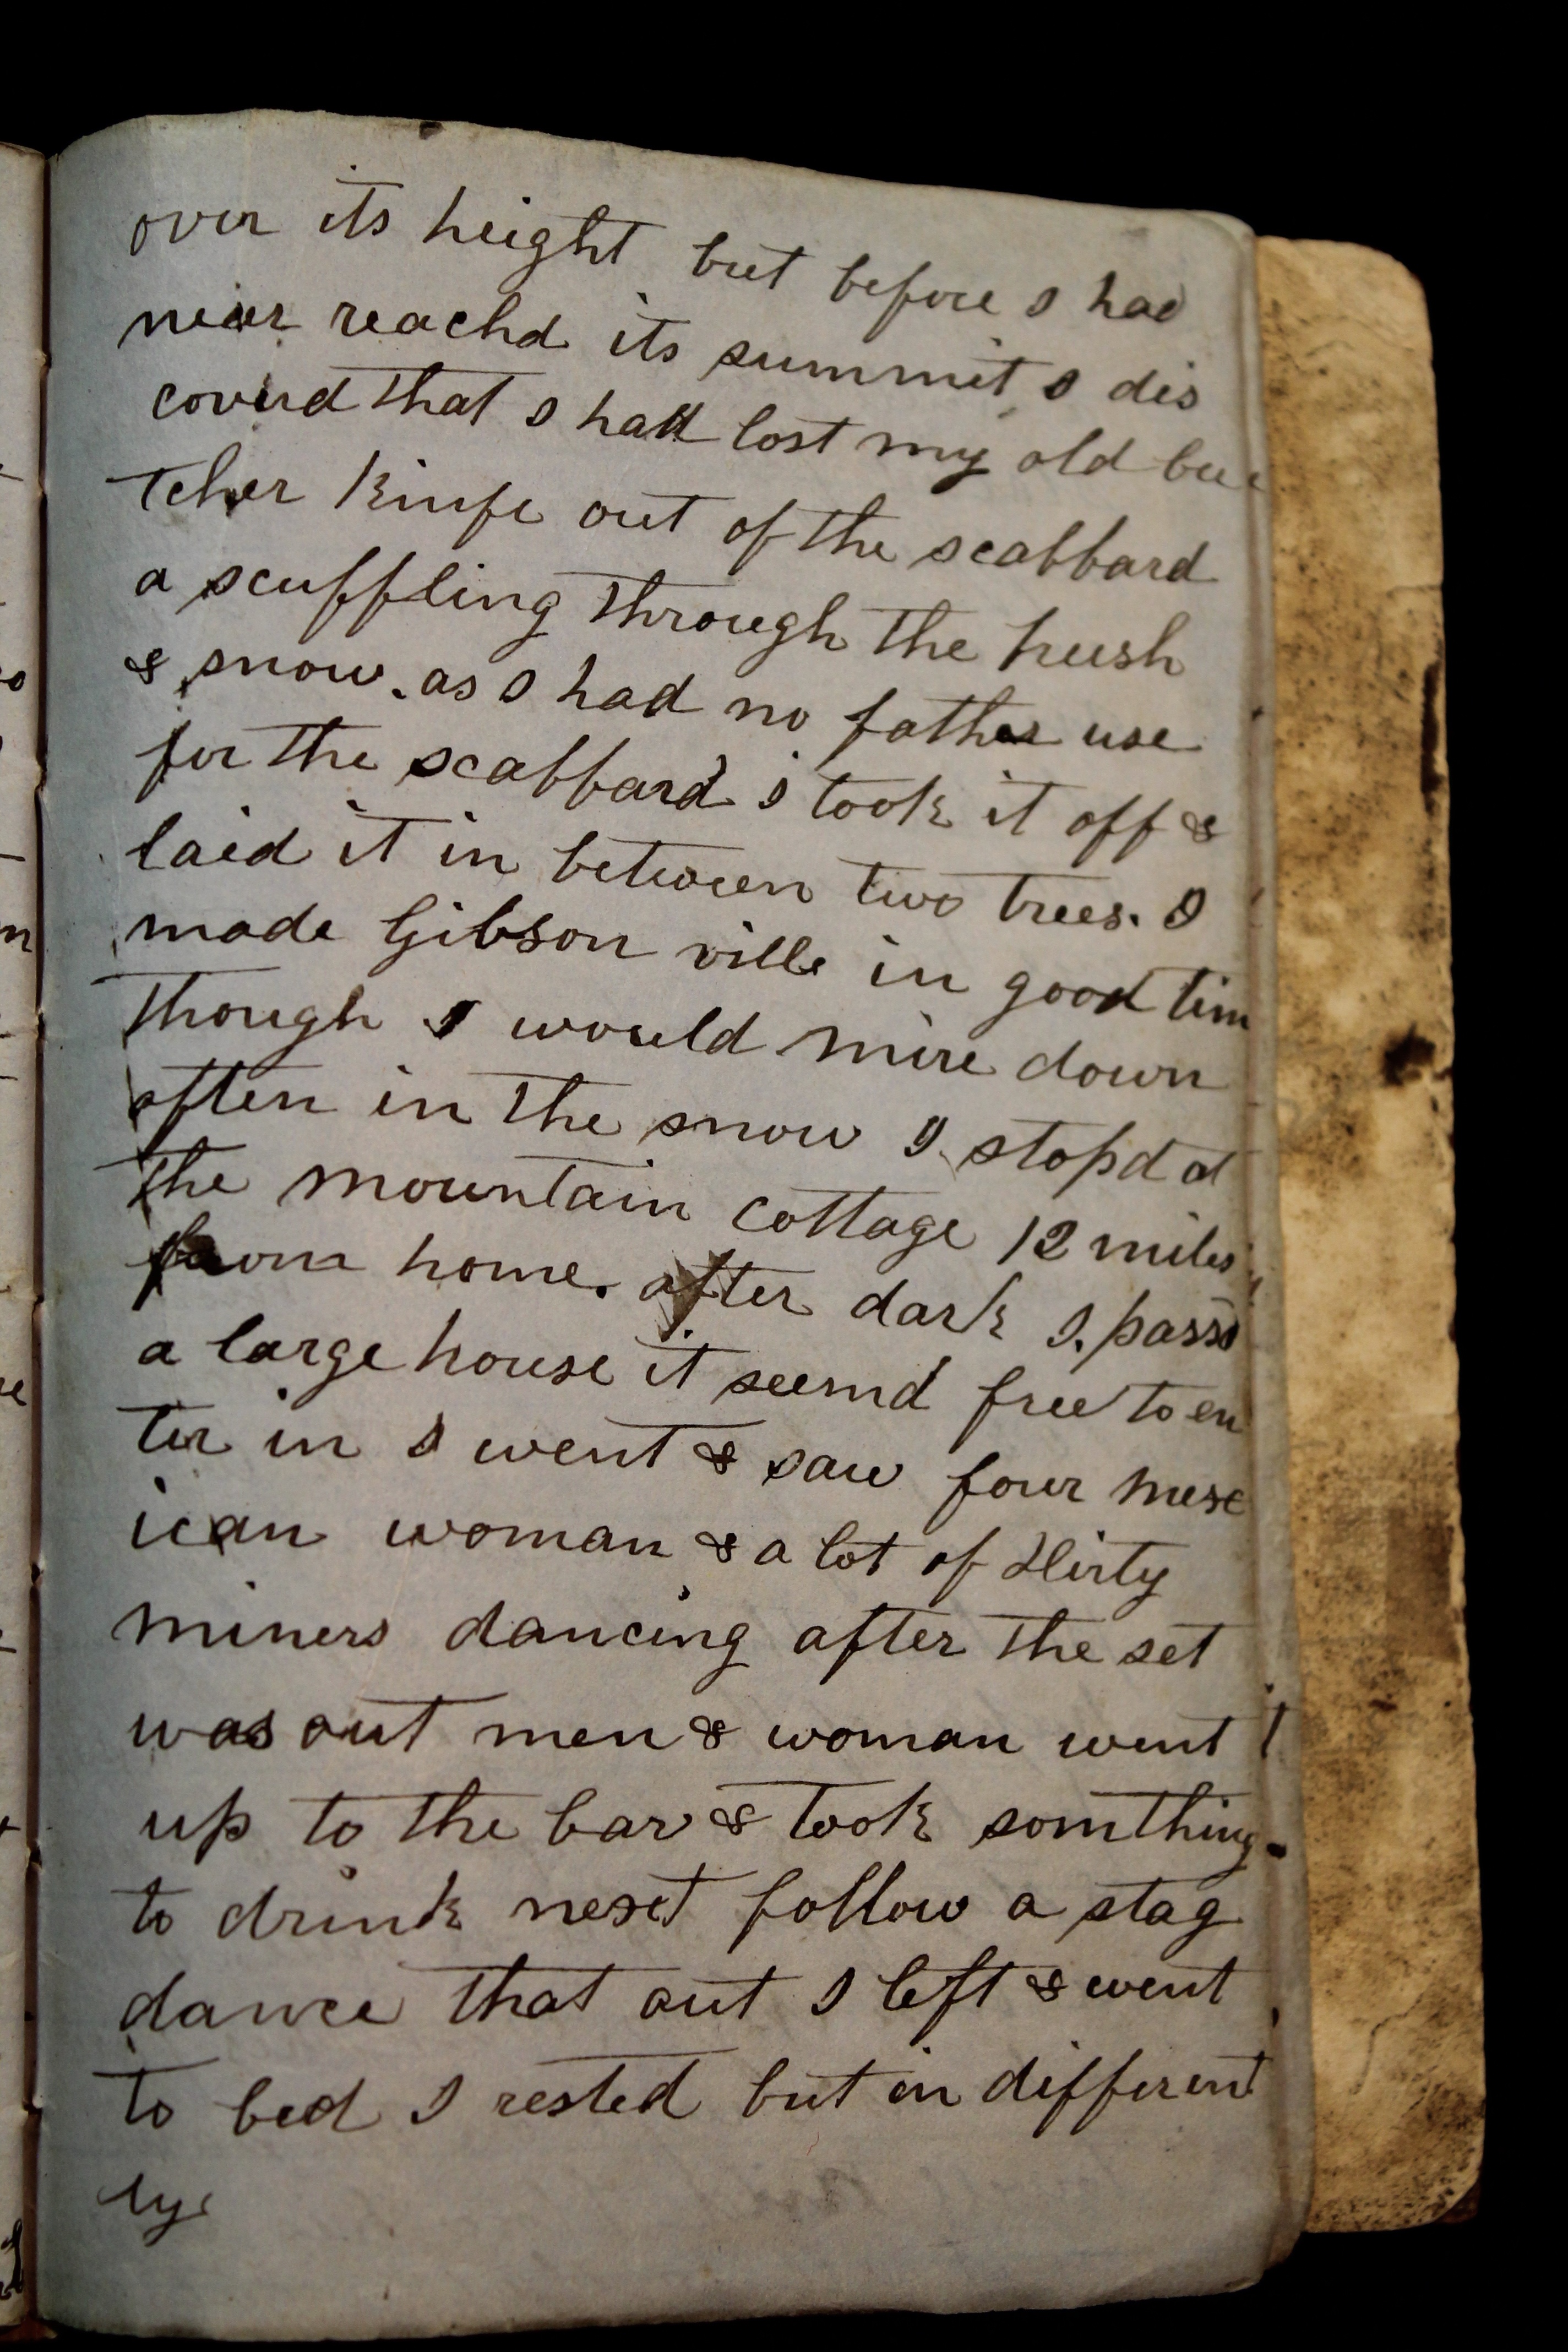 over its height but before I had
near reachd its summit I dis
coverd that I had lost my old bu
tcher kinfe out of the scabbard
a scuffling through the brush
& snow. as I had no father use
for the scabbard I took it off &
laid it in between two trees. I
made Gibson ville in good tim
though I would mire down
often in the snow I stopd at
the mountain cottage 12 miles
from home. after dark I passd
a large house it seemd free to en
ter in I went & saw four mex
ican woman & a lot of dirty
miners dancing after the set
was out men & woman went
up to the bar & took somthing
to drink next follow a stag
dance that out I left & went
to bed I rested but in different
ly